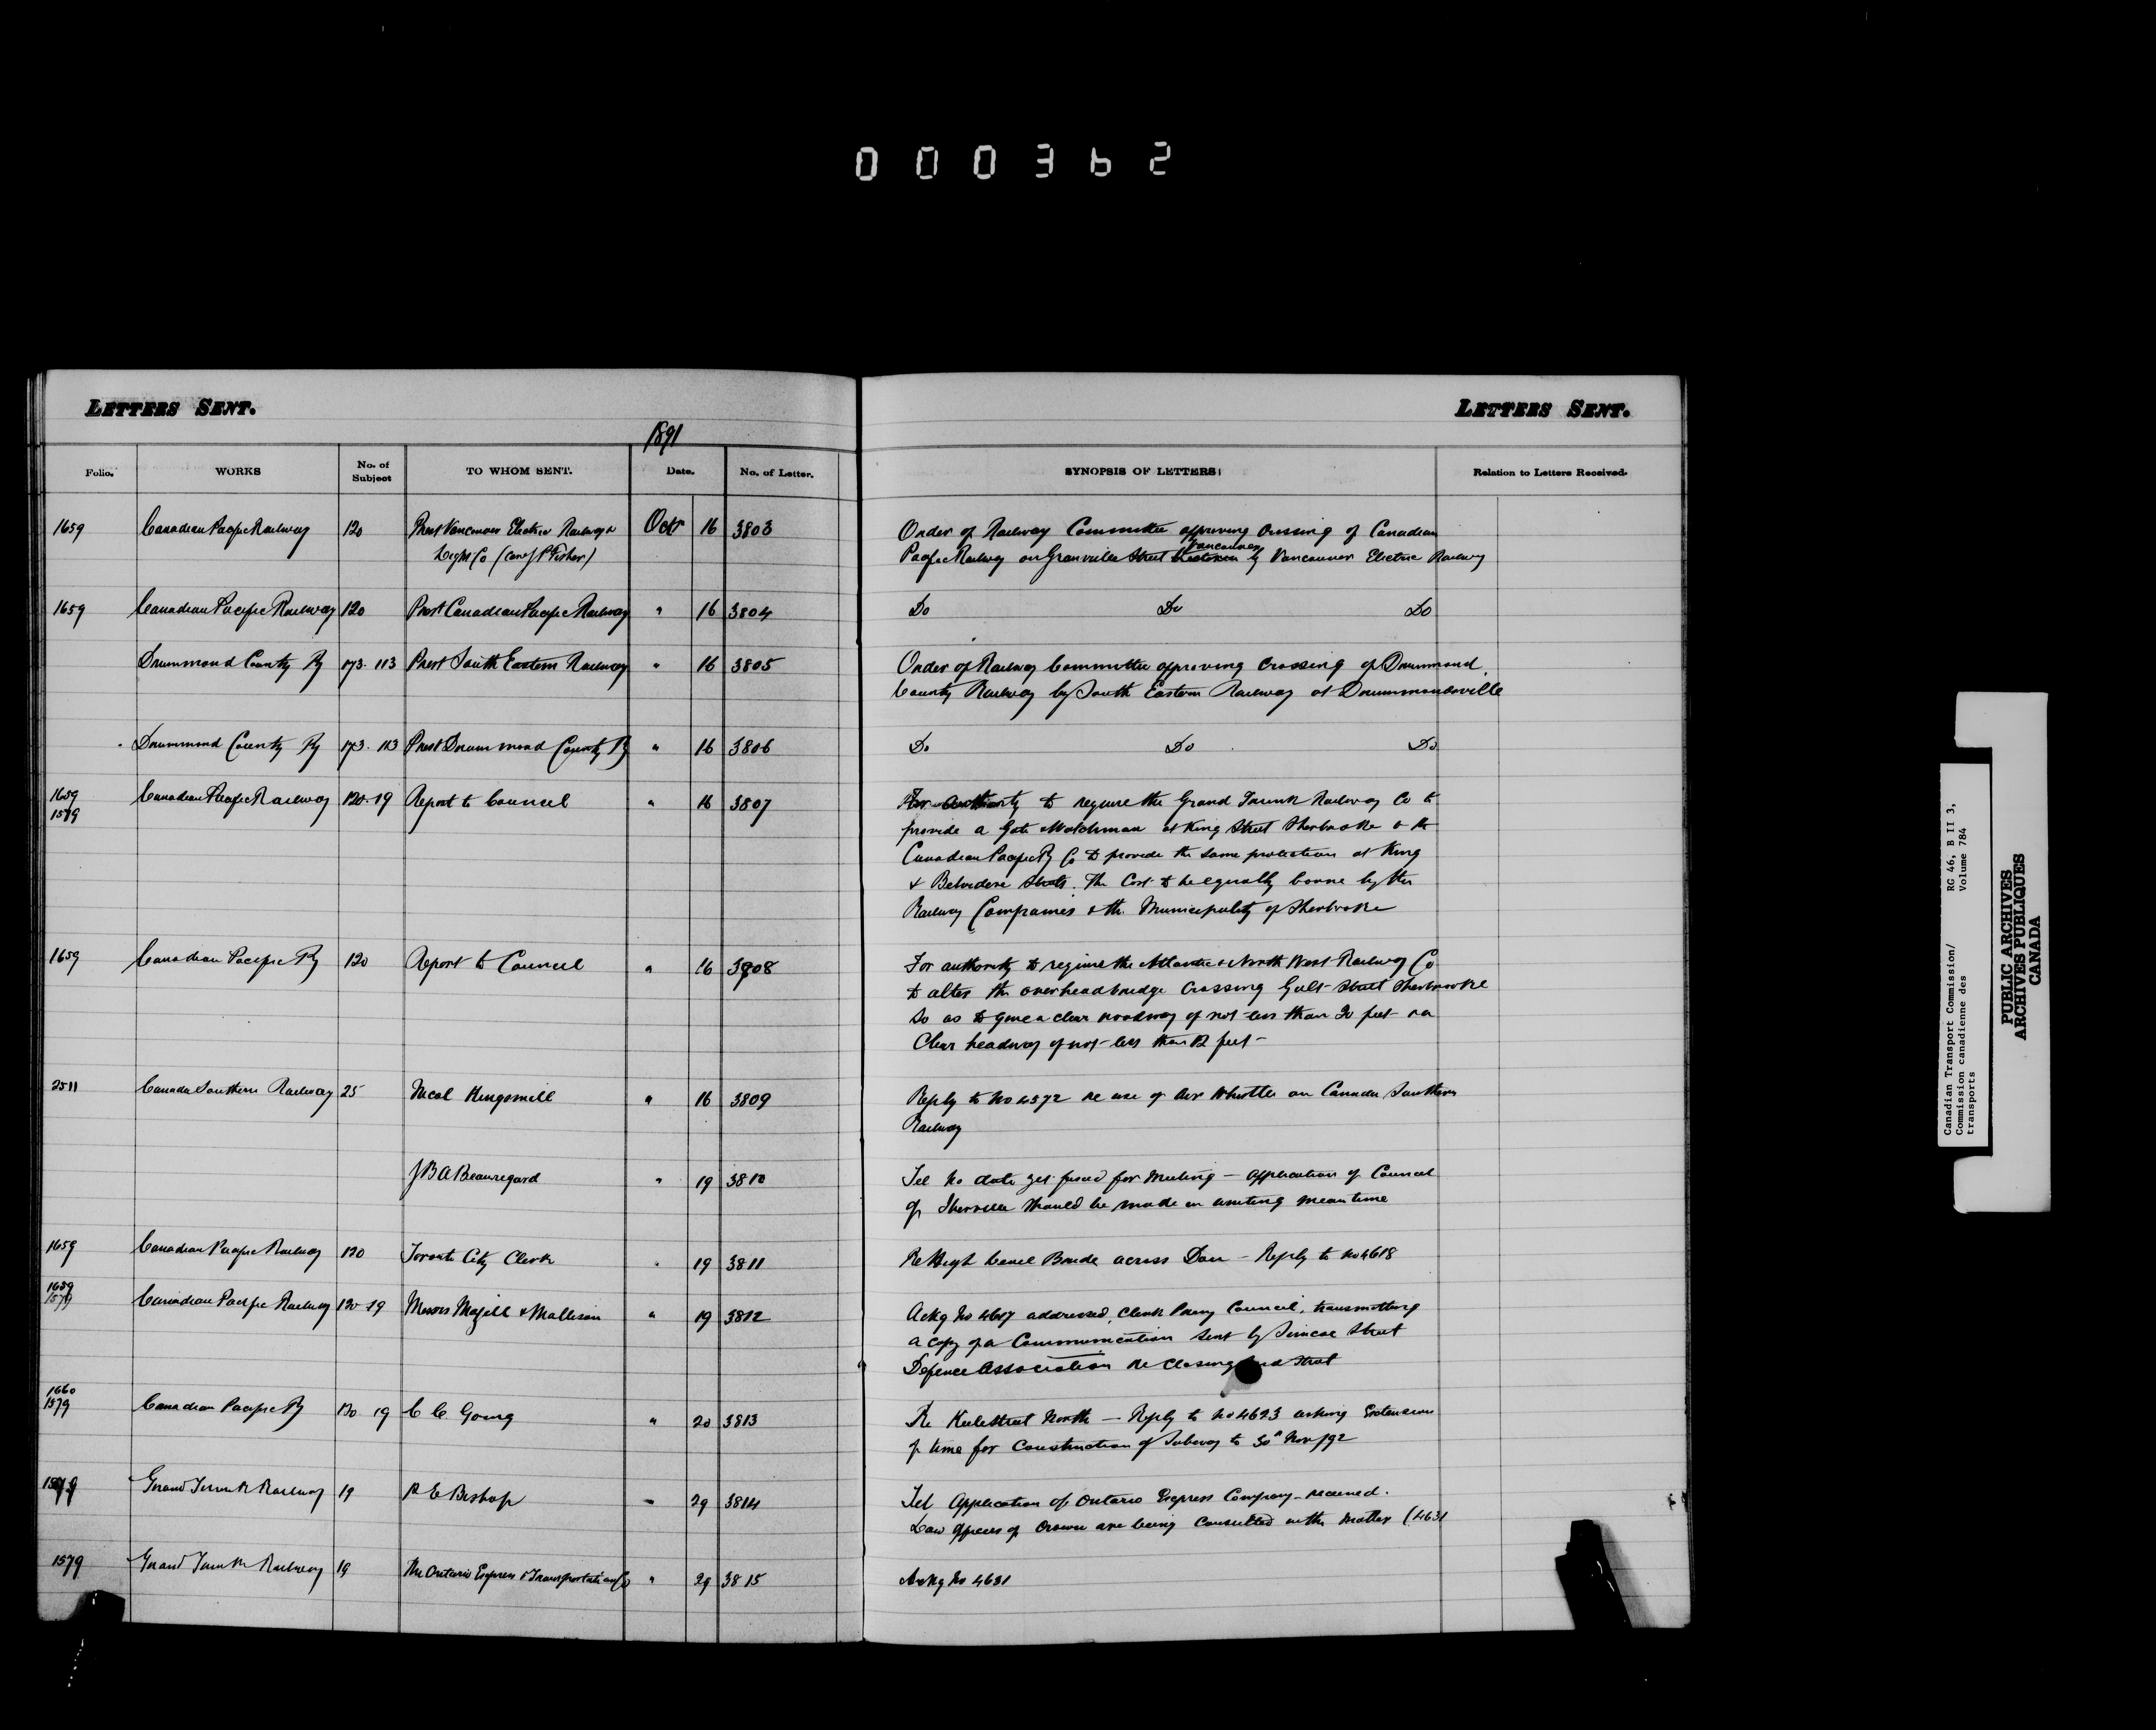 000362
LETTERS SENT.
LETTERS SENT.
1891
Folio. WORKS No. of Subject TO WHOM SENT. Date. No. of Letter. SYNOPSIS OF LETTERS Relation to Letters Received.
1659 Canadian Pacific Railway 120 Prest Vancouver Electric Railway & Oct 16 3803 Order of Railway Committee approving crossing of Canadian
Light Co (care J P Fisher) Pacific Railway on Granville Street Vancouver by Vancouver Electric Railway
1659 Canadian Pacific Railway 120 Prest Canadian Pacific Railway " 16 3804 Do Do Do
Drummond County Ry 173. 113 Prest South Eastern Railway " 16 3805 Order of Railway Committee approving crossing of Drummond
County Railway by South Eastern Railway at Drummondville
Drummond County Ry 173. 113 Prest Drummond County Ry " 16 3806 Do Do Do
1659 1579 Canadian Pacific Railway 120. 19 Report to Council " 16 3807 For authority to require the Grand Trunk Railway Co to
provide a Gate & Watchman at King Street Sherbrooke & the
Canadian Pacific Ry Co to provide the same protection at King
& Belvidere Streets. The Cost to be equally borne by the
Railway Companies & the Municipality of Sherbrooke
1659 Canadian Pacific Ry 120 Report to Council " 16 3808 For authority to require the Atlantic & North West Railway Co
to alter the overhead bridge crossing Galt Street Sherbrooke
so as to give a clear roadway of not less than 20 feet & a
Clear headway of not less than 12 feet -
2511 Canada Southern Railway 25 Nicol Kingsmill " 16 3809 Reply to No 4572 re use of Air Whistle on Canada Southern
Railway
J B A Beauregard " 19 3810 Tel No date yet fixed for Meeting - application of Council
of Iberville should be made in writing meantime
1659 120 Canadian Pacific Railway Toronto City Clerk " 19 3811 Re High Level Bridge across Don - Reply to No 4618
1659 1579 Canadian Pacific Railway 120-19 Messrs & " 19 3812 Ackg No 4617 addressed Clerk Privy Council, transmitting
a copy of a Communication sent by Simcoe Street
Defence Association re closing street
1660 1579 Canadian Pacific Ry 120. 19 C C Going " 20 3813 Re Keele Street North - Reply to No 4623 asking Extension
of time for construction of Subway to 30th Nov/92
1579 Grand Trunk Railway 19 R E Bishop " 29 3814 Tel Application of Ontario Express Company received.
Law Officers of Crown are being consulted in the matter (4631
1579 Grand Trunk Railway 19 The Ontario Express & Transportation Co " 29 3815 Ackg No 4631
Canadian Transport Commission/ RG 46, B II 3,
Commission canadienne des Volume 784
transports
PUBLIC ARCHIVES
ARCHIVES PUBLIQUES
CANADA